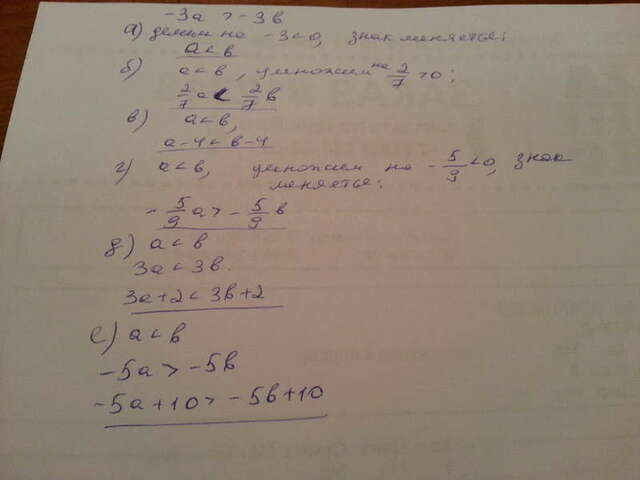 -3a > -3b
а) делим на -3<0, знак меняетье:
a < b
б) a < b, умножим на 2/7 >0;
2/7 a < 2/7 b
в) a < b,
a-4 < b-4
г) a < b, умножим на -5/9 <0, знак
меняетье:
-5/9 a > -5/9 b
д) a < b
3a < 3b.
3a+2 < 3b+2
е) a < b
-5a > -5b
-5a+10 > -5b+10